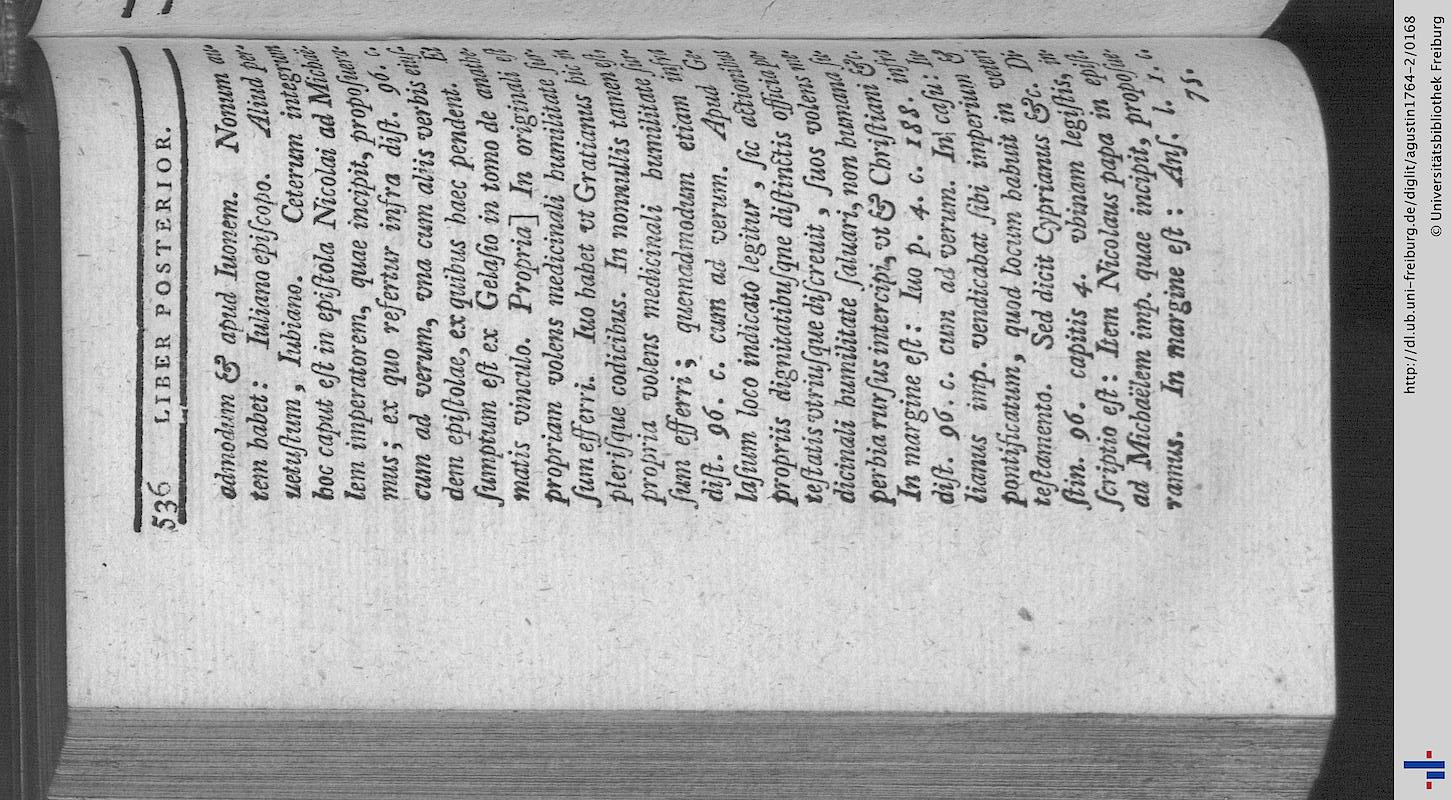 536 LIBER POSTERIOR.
admodum & apud Iuonem. Nonum
tem habet: Iuliano epiſcopo. Aliud
uetuſtum, Iubiano. Ceterum integrum
hoc caput eſt in epiſtola Nicolai ad Michaë-
lem imperatorem, quae incipit, propoſuera-
mus; ex quo refertur infra diſt. 96. c.
cum ad verum, vna cum aliis verbis eiuſ-
dem epiſtolae, ex quibus haec pendent. Et
ſumptum eſt ex Gelaſio in tomo de anathe-
matis vinculo. Propria] In originali eſt
propriam volens medicinali humilitate
ſum efferri. Iuo habet vt Gratianus hic in
pleriſque codicibus. In nonnullis tamen eſt,
propria volens medicinali humilitate ſur-
ſum efferri; quemadmodum etiam infra
diſt. 96. c. cum ad verum. Apud Ge-
laſium loco indicato legitur, ſic actionibus
propriis dignitatibuſque diſtinctis officia
teſtatis vtriuſque diſcreuit, ſuos volens me-
dicinali humilitate ſaluari, non humana ſu-
perbia rurſus intercipi, vt & Chriſtiani &c.
In margine eſt: Iuo p. 4. c. 188. infra
diſt. 96. c. cum ad verum. In caſu:
lianus imp. vendicabat ſibi imperium &
pontificatum, quod locum habuit in
teſtamento. Sed dicit Cyprianus &c. in-
ſtin. 96. capitis 4. vbinam legiſtis, in
ſcriptio eſt: Item Nicolaus papa in epiſt.
ad Michaëlem imp. quae incipit, propoſue-
ramus. In margine eſt: Anſ. l. 1. c.
75.
http://dl.ub.uni-freiburg.de/diglit/agustin1764-2/0168
© Universitätsbibliothek Freiburg